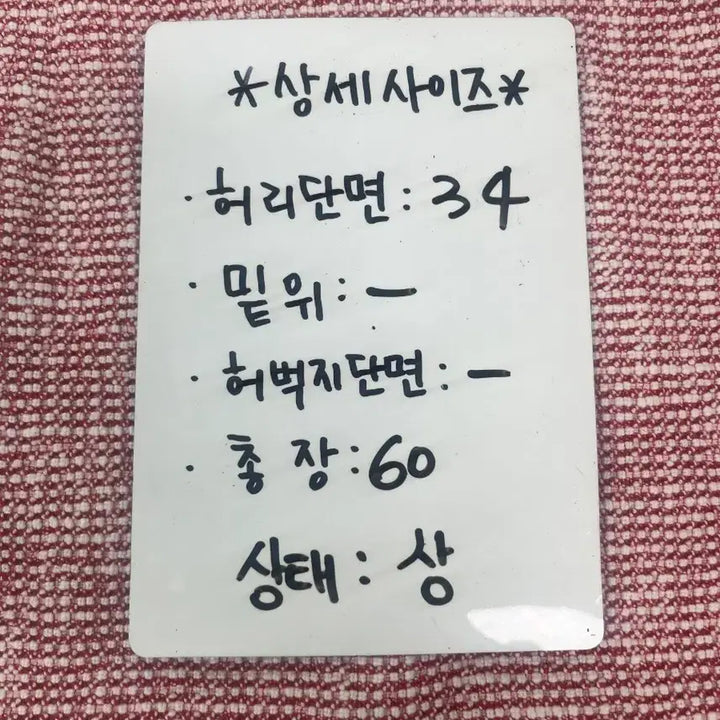 *상세사이즈*
· 허리단면 : 34
· 밑위 : —
· 허벅지단면 : —
· 총장 : 60
상태 : 상